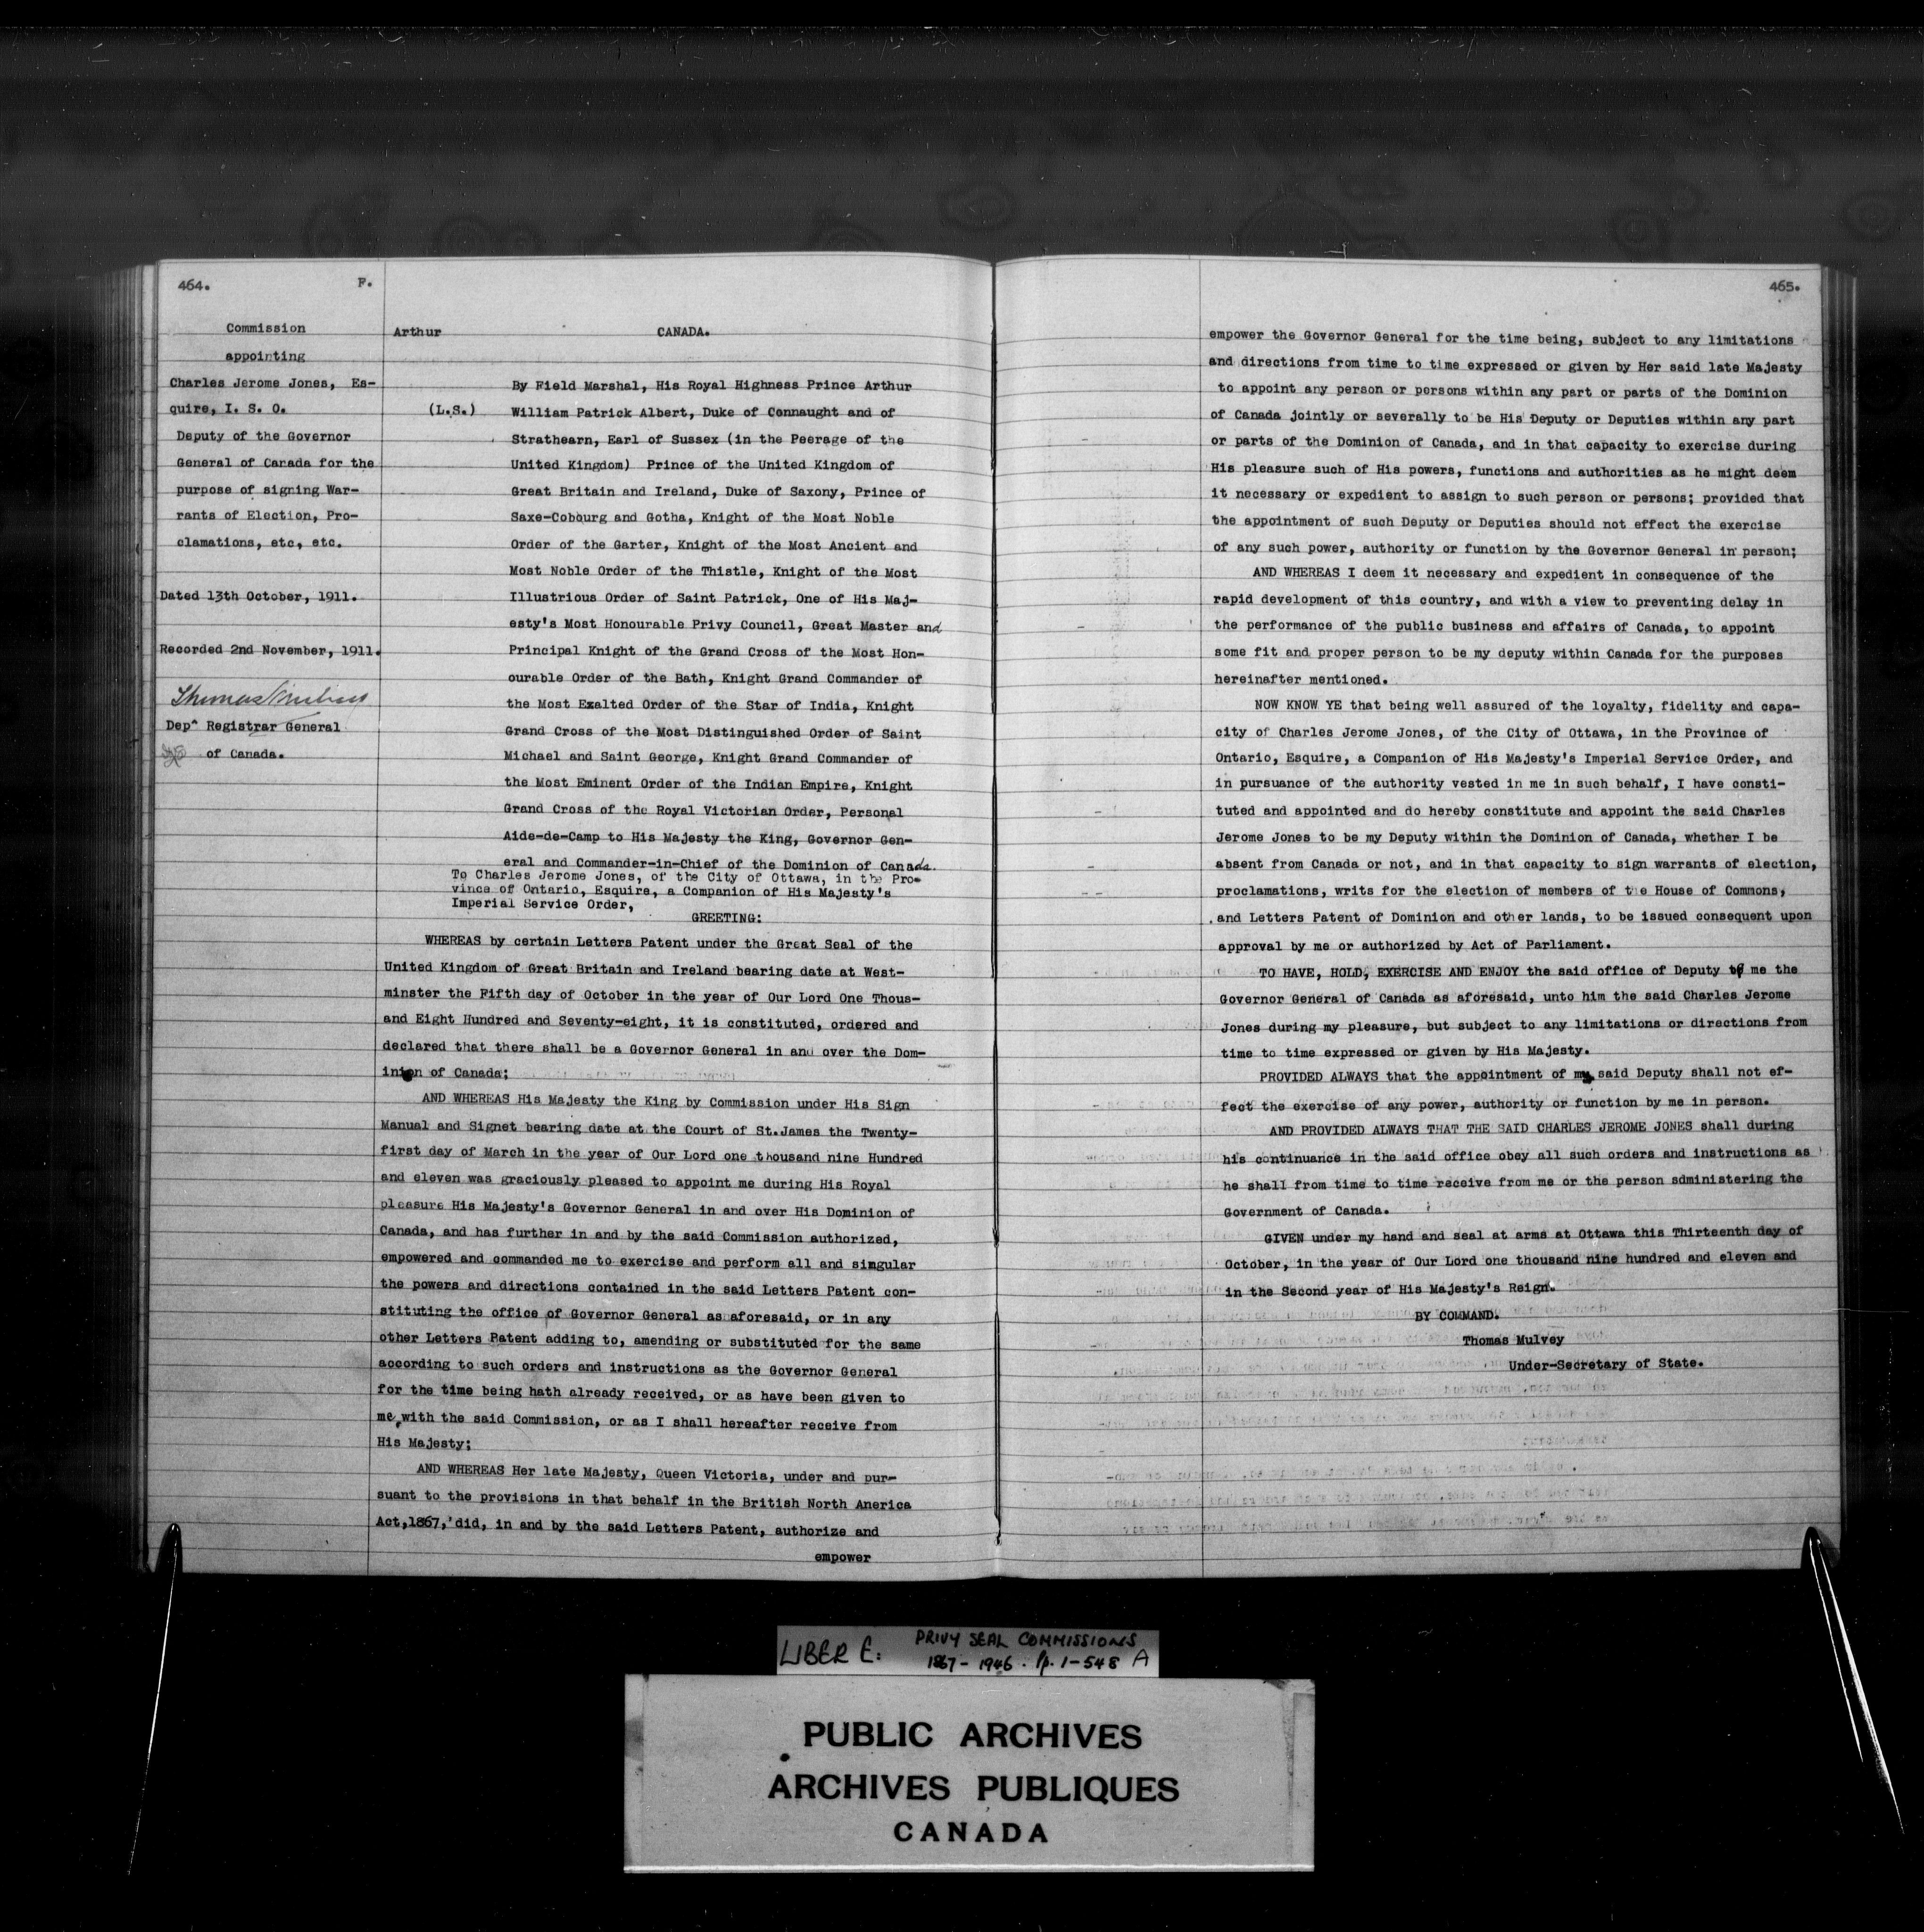 464.
F.
Commission
appointing
Charles Jerome Jones, Es-
quire, I. S. O.
Deputy of the Governor
General of Canada for the
purpose of signing War-
rants of Election, Pro-
clamations, etc, etc.
Dated 13th October, 1911.
Recorded 2nd November, 1911.
Thomas Mulvey
Dep^ Registrar General
of Canada.
Arthur
CANADA.
(L.S.)
By Field Marshal, His Royal Highness Prince Arthur
William Patrick Albert, Duke of Connaught and of
Strathearn, Earl of Sussex (in the Peerage of the
United Kingdom) Prince of the United Kingdom of
Great Britain and Ireland, Duke of Saxony, Prince of
Saxe-Cobourg and Gotha, Knight of the Most Noble
Order of the Garter, Knight of the Most Ancient and
Most Noble Order of the Thistle, Knight of the Most
Illustrious Order of Saint Patrick, One of His Maj-
esty's Most Honourable Privy Council, Great Master and
Principal Knight of the Grand Cross of the Most Hon-
ourable Order of the Bath, Knight Grand Commander of
the Most Exalted Order of the Star of India, Knight
Grand Cross of the Most Distinguished Order of Saint
Michael and Saint George, Knight Grand Commander of
the Most Eminent Order of the Indian Empire, Knight
Grand Cross of the Royal Victorian Order, Personal
Aide-de-Camp to His Majesty the King, Governor Gen-
eral and Commander-in-Chief of the Dominion of Canada.
To Charles Jerome Jones, of the City of Ottawa, in the Pro-
vince of Ontario, Esquire, a Companion of His Majesty's
Imperial Service Order,
GREETING:
WHEREAS by certain Letters Patent under the Great Seal of the
United Kingdom of Great Britain and Ireland bearing date at West-
minster the Fifth day of October in the year of Our Lord One Thous-
and Eight Hundred and Seventy-eight, it is constituted, ordered and
declared that there shall be a Governor General in and over the Dom-
inion of Canada;
AND WHEREAS His Majesty the King by Commission under His Sign
Manual and Signet bearing date at the Court of St.James the Twenty-
first day of March in the year of Our Lord one thousand nine Hundred
and eleven was graciously pleased to appoint me during His Royal
pleasure His Majesty's Governor General in and over His Dominion of
Canada, and has further in and by the said Commission authorized,
empowered and commanded me to exercise and perform all and singular
the powers and directions contained in the said Letters Patent con-
stituting the office of Governor General as aforesaid, or in any
other Letters Patent adding to, amending or substituted for the same
according to such orders and instructions as the Governor General
for the time being hath already received, or as have been given to
me, with the said Commission, or as I shall hereafter receive from
His Majesty;
AND WHEREAS Her late Majesty, Queen Victoria, under and pur-
suant to the provisions in that behalf in the British North Anerica
Act,1867,'did, in and by the said Letters Patent, authorize and
empower
465.
empower the Governor General for the time being, subject to any limitations
and directions from time to time expressed or given by Her said late Majesty
to appoint any person or persons within any part or parts of the Dominion
of Canada jointly or severally to be His Deputy or Deputies within any part
or parts of the Dominion of Canada, and in that capacity to exercise during
His pleasure such of His powers, functions and authorities as he might deem
it necessary or expedient to assign to such person or persons; provided that
the appointment of such Deputy or Deputies should not effect the exercise
of any such power, authority or function by the Governor General in person;
AND WHEREAS I deem it necessary and expedient in consequence of the
rapid development of this country, and with a view to preventing delay in
the performance of the public business and affairs of Canada, to appoint
some fit and proper person to be my deputy within Canada for the purposes
hereinafter mentioned.
NOW KNOW YE that being well assured of the loyalty, fidelity and capa-
city of Charles Jerome Jones, of the City of Ottawa, in the Province of
Ontario, Esquire, a Companion of His Majesty's Imperial Service Order, and
in pursuance of the authority vested in me in such behalf, I have consti-
tuted and appointed and do hereby constitute and appoint the said Charles
Jerome Jones to be my Deputy within the Dominion of Canada, whether I be
absent from Canada or not, and in that capacity to sign warrants of election,
proclamations, writs for the election of members of the House of Commons,
and Letters Patent of Dominion and other lands, to be issued consequent upon
approval by me or authorized by Act of Parliament.
TO HAVE, HOLD, EXERCISE AND ENJOY the said office of Deputy of me the
Governor General of Canada as aforesaid, unto him the said Charles Jerome
Jones during my pleasure, but subject to any limitations or directions from
time to time expressed or given by His Majesty.
PROVIDED ALWAYS that the appointment of my said Deputy shall not ef-
fect the exercise of any power, authority or function by me in person.
AND PROVIDED ALWAYS THAT THE SAID CHARLES JEROME JONES shall during
his continuance in the said office obey all such orders and instructions as
he shall from time to time receive from me or the person sdministering the
Government of Canada.
GIVEN under my hand and seal at arms at Ottawa this Thirteenth day of
October, in the year of Our Lord one thousand nine hundred and eleven and
in the Second year of His Majesty's Reign.
BY COMMAND.
Thomas Mulvey
Under-Secretary of State.
LIBER E: PRIVY SEAL COMMISSIONS
1867-1946. Pp. 1-548 A
PUBLIC ARCHIVES
ARCHIVES PUBLIQUES
CANADA